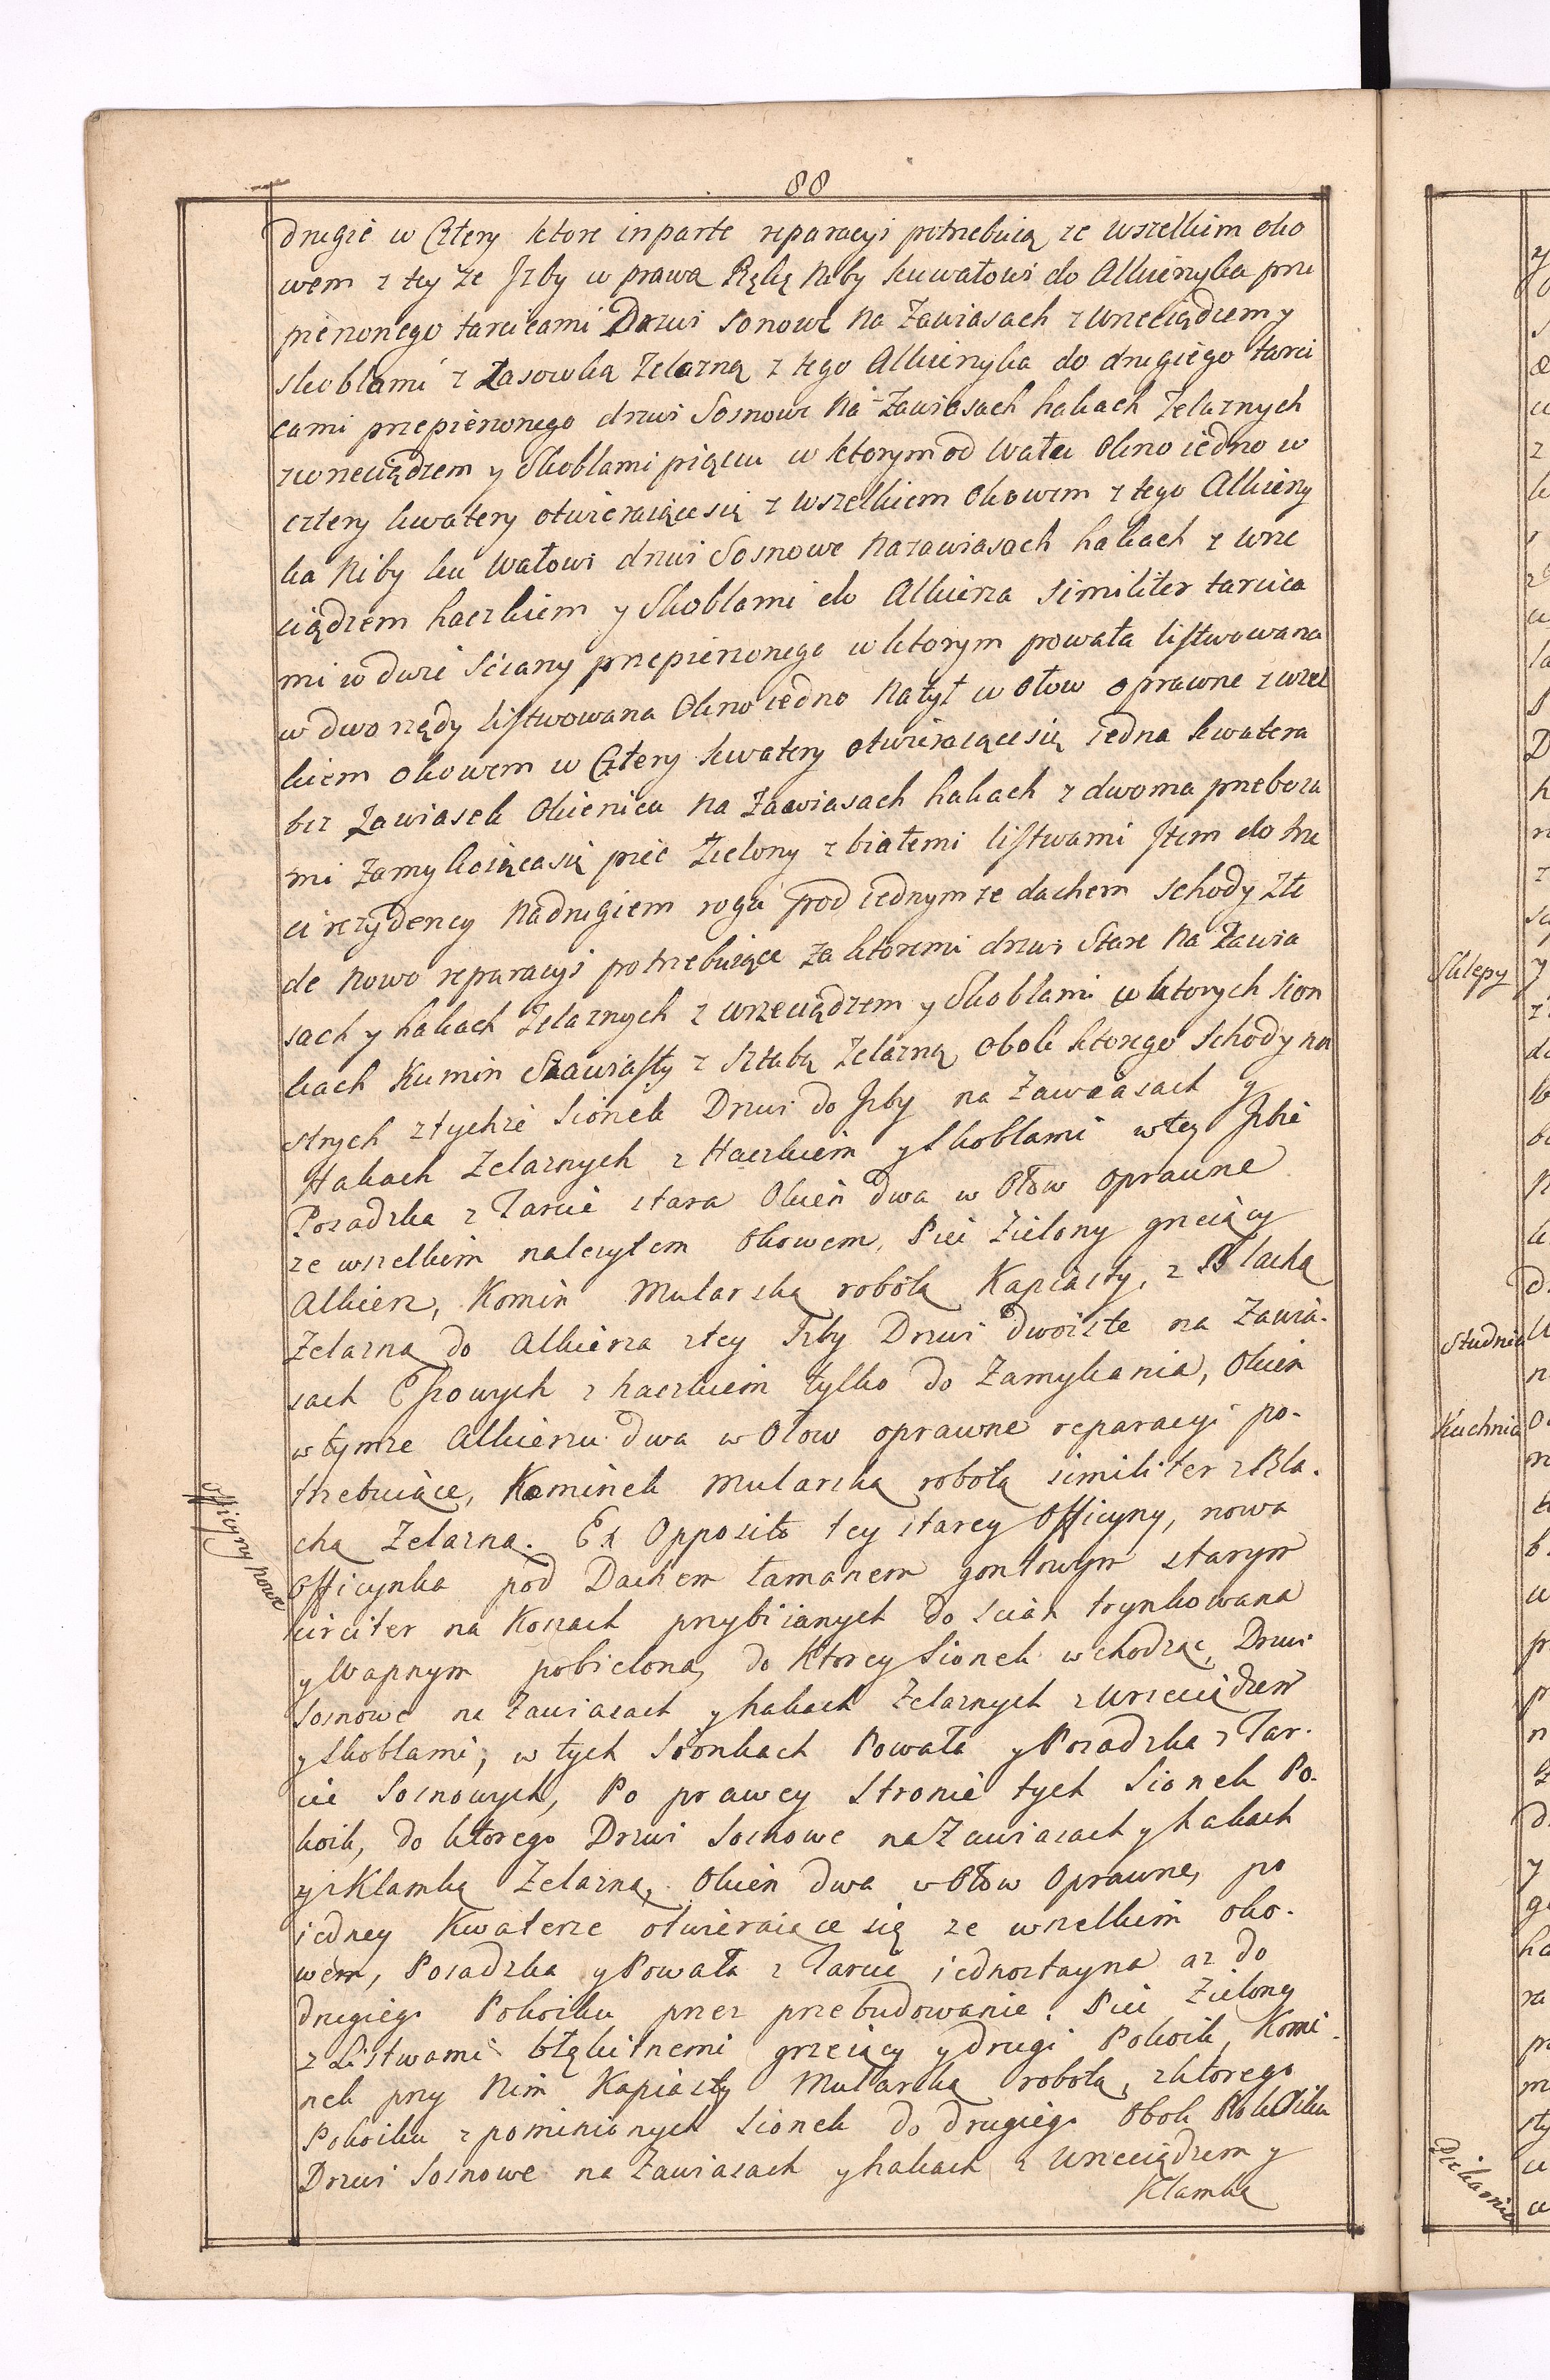 88
drugie w Cztery ktore in parte reparacyi potrzebuią ze wszelkim oko
wem z tey ze Jzby w prawą Rękę Niby ku wałowi do Alkierzyka prze
pierzonego tarcicami Drzwi sosnowe Na Zawiasach z wrzeciądzem y
skoblami z Zasowką Zelazną z tego Alkierzyka do drugiego tarci
cami przepierzonego drzwi Sosnowe Na Zawiasach hakach Zelaznych
z wrzeciądzem y Skoblami pięciu w ktorym od wału Okno iedno w
cztery kwatery otwieraiące się z wszelkiem Okowem z tego Alkierzy
ka Niby ku Wałowi drzwi Sosnowe Na zawiasach hakach z wrze
ciądzem haczkiem y Skoblami do Alkierza similiter tarcica
mi w dwie ściany przepierzonego w ktorym powała listwowana
w dwo rzędy listwowana Okno iedno Na tył w Ołow oprawne z wszel
kiem okowem w Cztery kwatery otwieraiące się iedna kwatera
bez Zawiasek Okienica Na Zawiasach hakach z dwoma przebora
mi Zamykaiąca się piec Zielony z białemi listwami Jtem do trze
ci rezydency Na drugiem rogu pod iednym ze dachem schody Złe
de Nowo reparacyi potrzebuiące za ktoremi drzwi Stare Na Zawia
sach y hakach Zelaznych z wrzeciądzem y Skoblami w ktorych sion
kach Kumin Szawiasty z Sztabą Zelazną, obok ktorego Schody na
strych z tychże Sionek Drzwi do Jzby na Zawiasach y
Hakach Zelaznych z Haczkiem y Skoblami w tey Jzbie
Posadzka z Tarcic stara Okien dwa w Ołow oprawne
ze wszelkim nalezytem Okowem, Piec Zielony grzeiący
Alkierz, Komin Mularską robotą Kapiasty, z Blachą
Zelazną do Alkierza z tey Jzby Drzwi dwoiste na Zawia-
sach Essowych z haczkiem tylko do Zamykania, Okien
w tymze Alkierzu dwa w Ołow oprawne reparacyi po-
trzebuiące, Kominek Mularską robotą similiter z Bla-
chą Zelazną. Ex Opposito tey starey Officyny, nowa
Officyny nowe
Officynka pod Dachem łamanem gontowym starym
circiter na Koszach przybiianych do scian trynkowana
y Wapnym pobielona, do Ktorey Sionek wchodząc, Drzwi
Sosnowe na Zawiasach y hakach Zelaznych z wrzeciądzem
y Skoblami; w tych Sionkach Powała y Posadzka z Tar-
cic Sosnowych, Po prawey Stronie tych Sionek Po-
koik, do ktorego Drzwi Sosnowe na Zawiasach y hakach
z Klamką Zelazną, Okien dwa w Ołow Oprawne, po
iedney Kwaterze otwieraiące się ze wszelkim oko-
wem, Posadzka y Powała z Tarcic iednostayna az do
drugiego Pokoiku przez przebudowanie. Piec Zielony
z Listwami błękitnemi grzeiący y drugi Pokoik, Komi-
nek przy Nim Kapiasty Mularską robotą, z ktorego
Pokoiku z pominionych Sionek do drugiego Obok Pokoiku
Drzwi Sosnowe na Zawiasach y hakach z Wrzeciądzem y
Klamką
Sklepy
Studnia
Kuchnia
Piekarnia